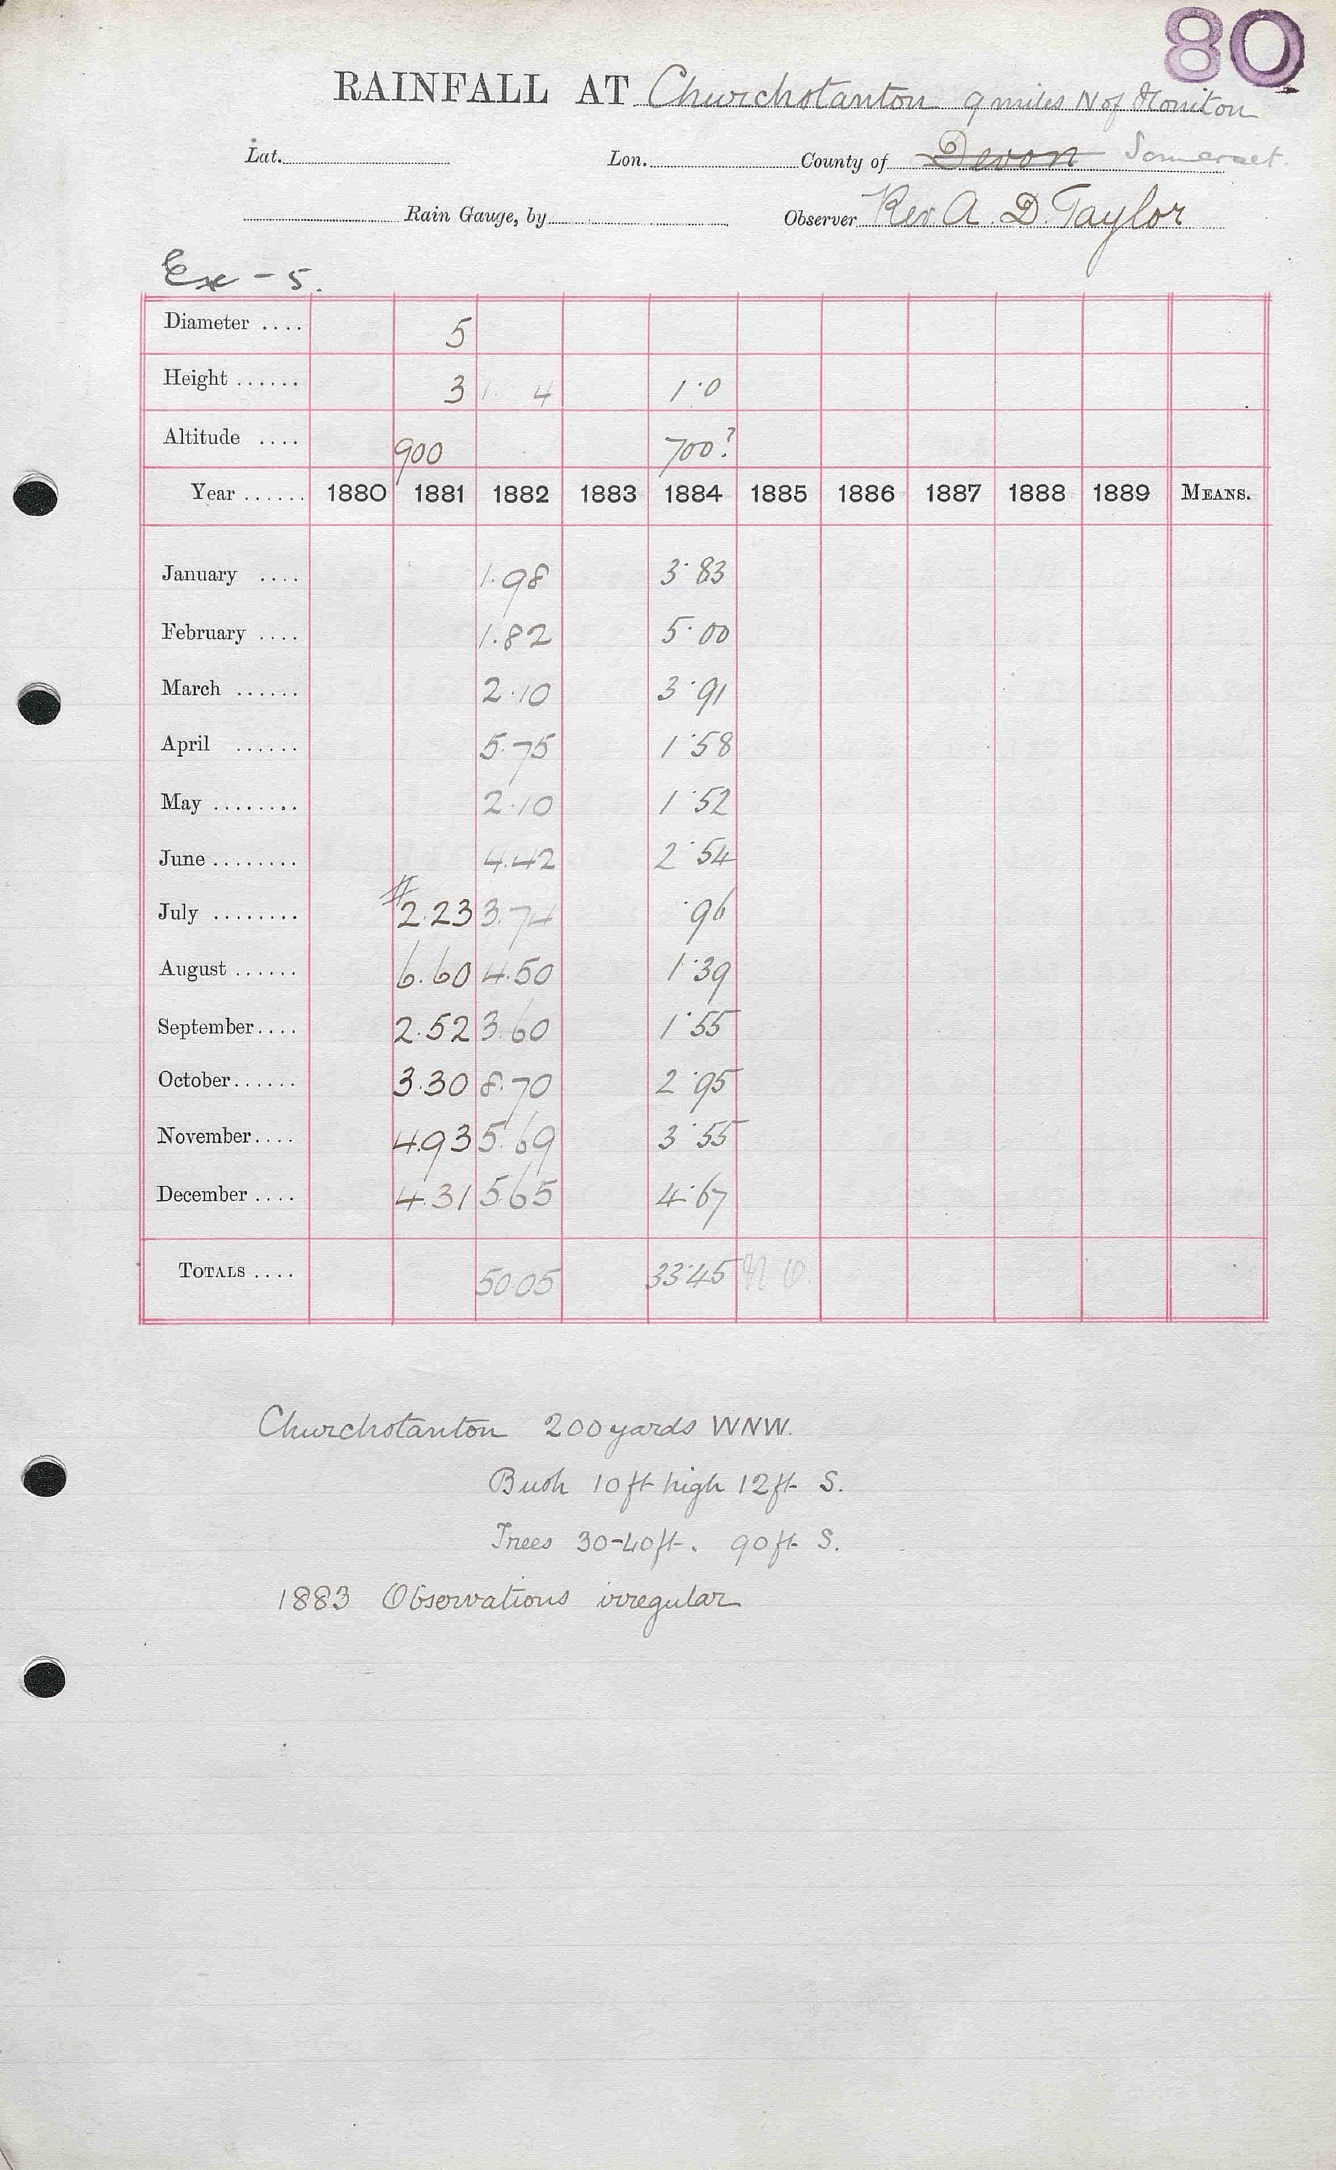 80
RAINFALL AT Churchstanton 9 miles N of Honiton
Lat. Lon. County of Devon Somerset
Rain Gauge, by Observer Rev. A. D. Taylor
Ex - 5.
Diameter .... 5
Height ...... 3 1. 4 1·0
Altitude .... 900 700?
Year ...... 1880 1881 1882 1883 1884 1885 1886 1887 1888 1889 MEANS.
January .... 1.98 3·83
February .... 1.82 5·00
March ...... 2.10 3·91
April ...... 5.75 1·58
May ........ 2.10 1·52
June ........ 4.42 2·54
July ........ # 2.23 3.74 ·96
August ...... 6.60 4.50 1·39
September .... 2.52 3.60 1·55
October ...... 3.30 8.70 2·95
November .... 4.93 5.69 3·55
December .... 4.31 5.65 4·67
TOTALS .... 50.05 33·45
Churchstanton 200 yards WNW.
Bush 10 ft high 12 ft S.
Trees 30-40 ft. 90 ft S.
1883 Observations irregular